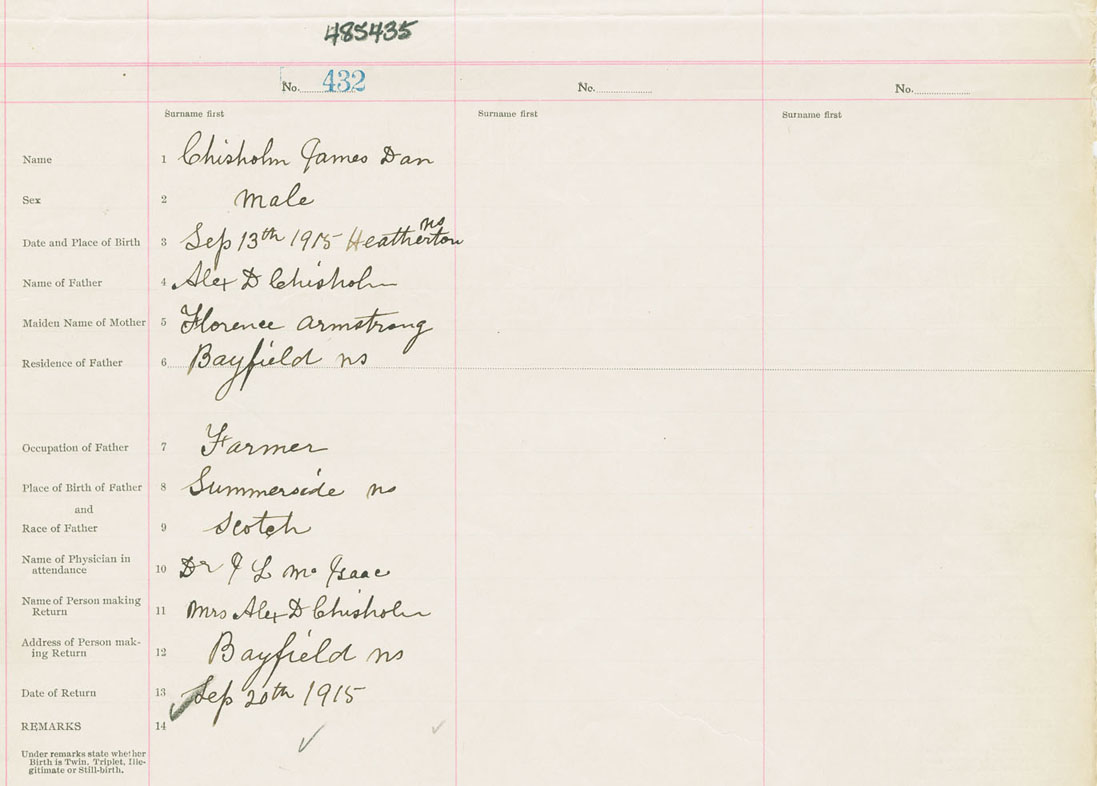 485435
No. 432 No. No.
Surname first Surname first Surname first
Name 1 Chisholm James Dan
Sex 2 male
ns
Date and Place of Birth 3 Sep 13th 1915 Heatherton
Name of Father 4 Alex D Chisholm
Maiden Name of Mother 5 Florence Armstrong
Residence of Father 6 Bayfield ns
Occupation of Father 7 Farmer
Place of Birth of Father 8 Summerside ns
and
Race of Father 9 Scotch
Name of Physician in
attendance 10 Dr J L Mc Isaac
Name of Person making
Return 11 Mrs Alex D Chisholm
Address of Person mak-
ing Return 12 Bayfield ns
Date of Return 13 Sep 20th 1915
REMARKS 14
Under remarks state whether
Birth is Twin, Triplet, Ille-
gitimate or Still-birth.